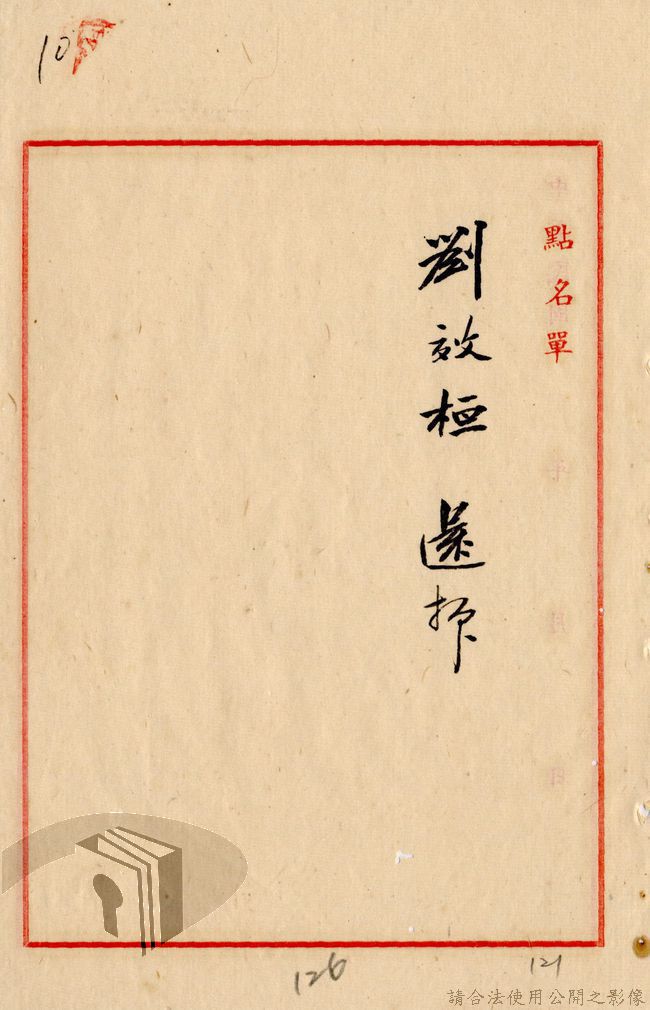 10
點名單
劉效桓 還押
126
121
請合法使用公開之影像